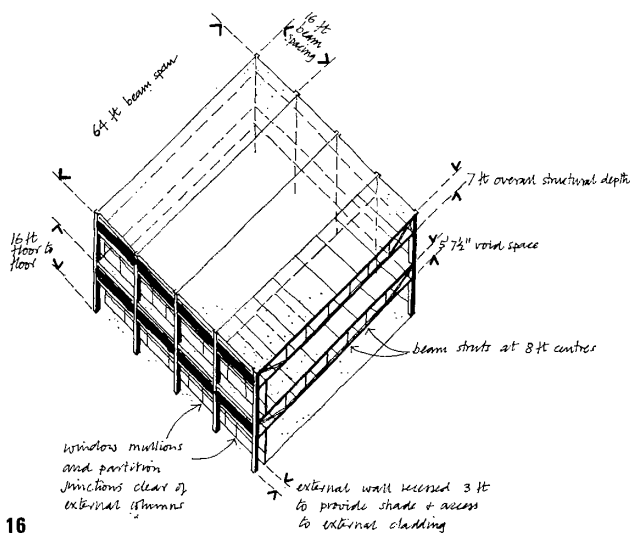 16 ft
beam
spacing
64 ft beam span
7 ft overall structural depth
5' 7½" void space
16 ft
floor to
floor
beam struts at 8 ft centres
window mullions
and partition
junctions clear of
external columns
external wall recessed 3 ft
to provide shade + access
to external cladding
16